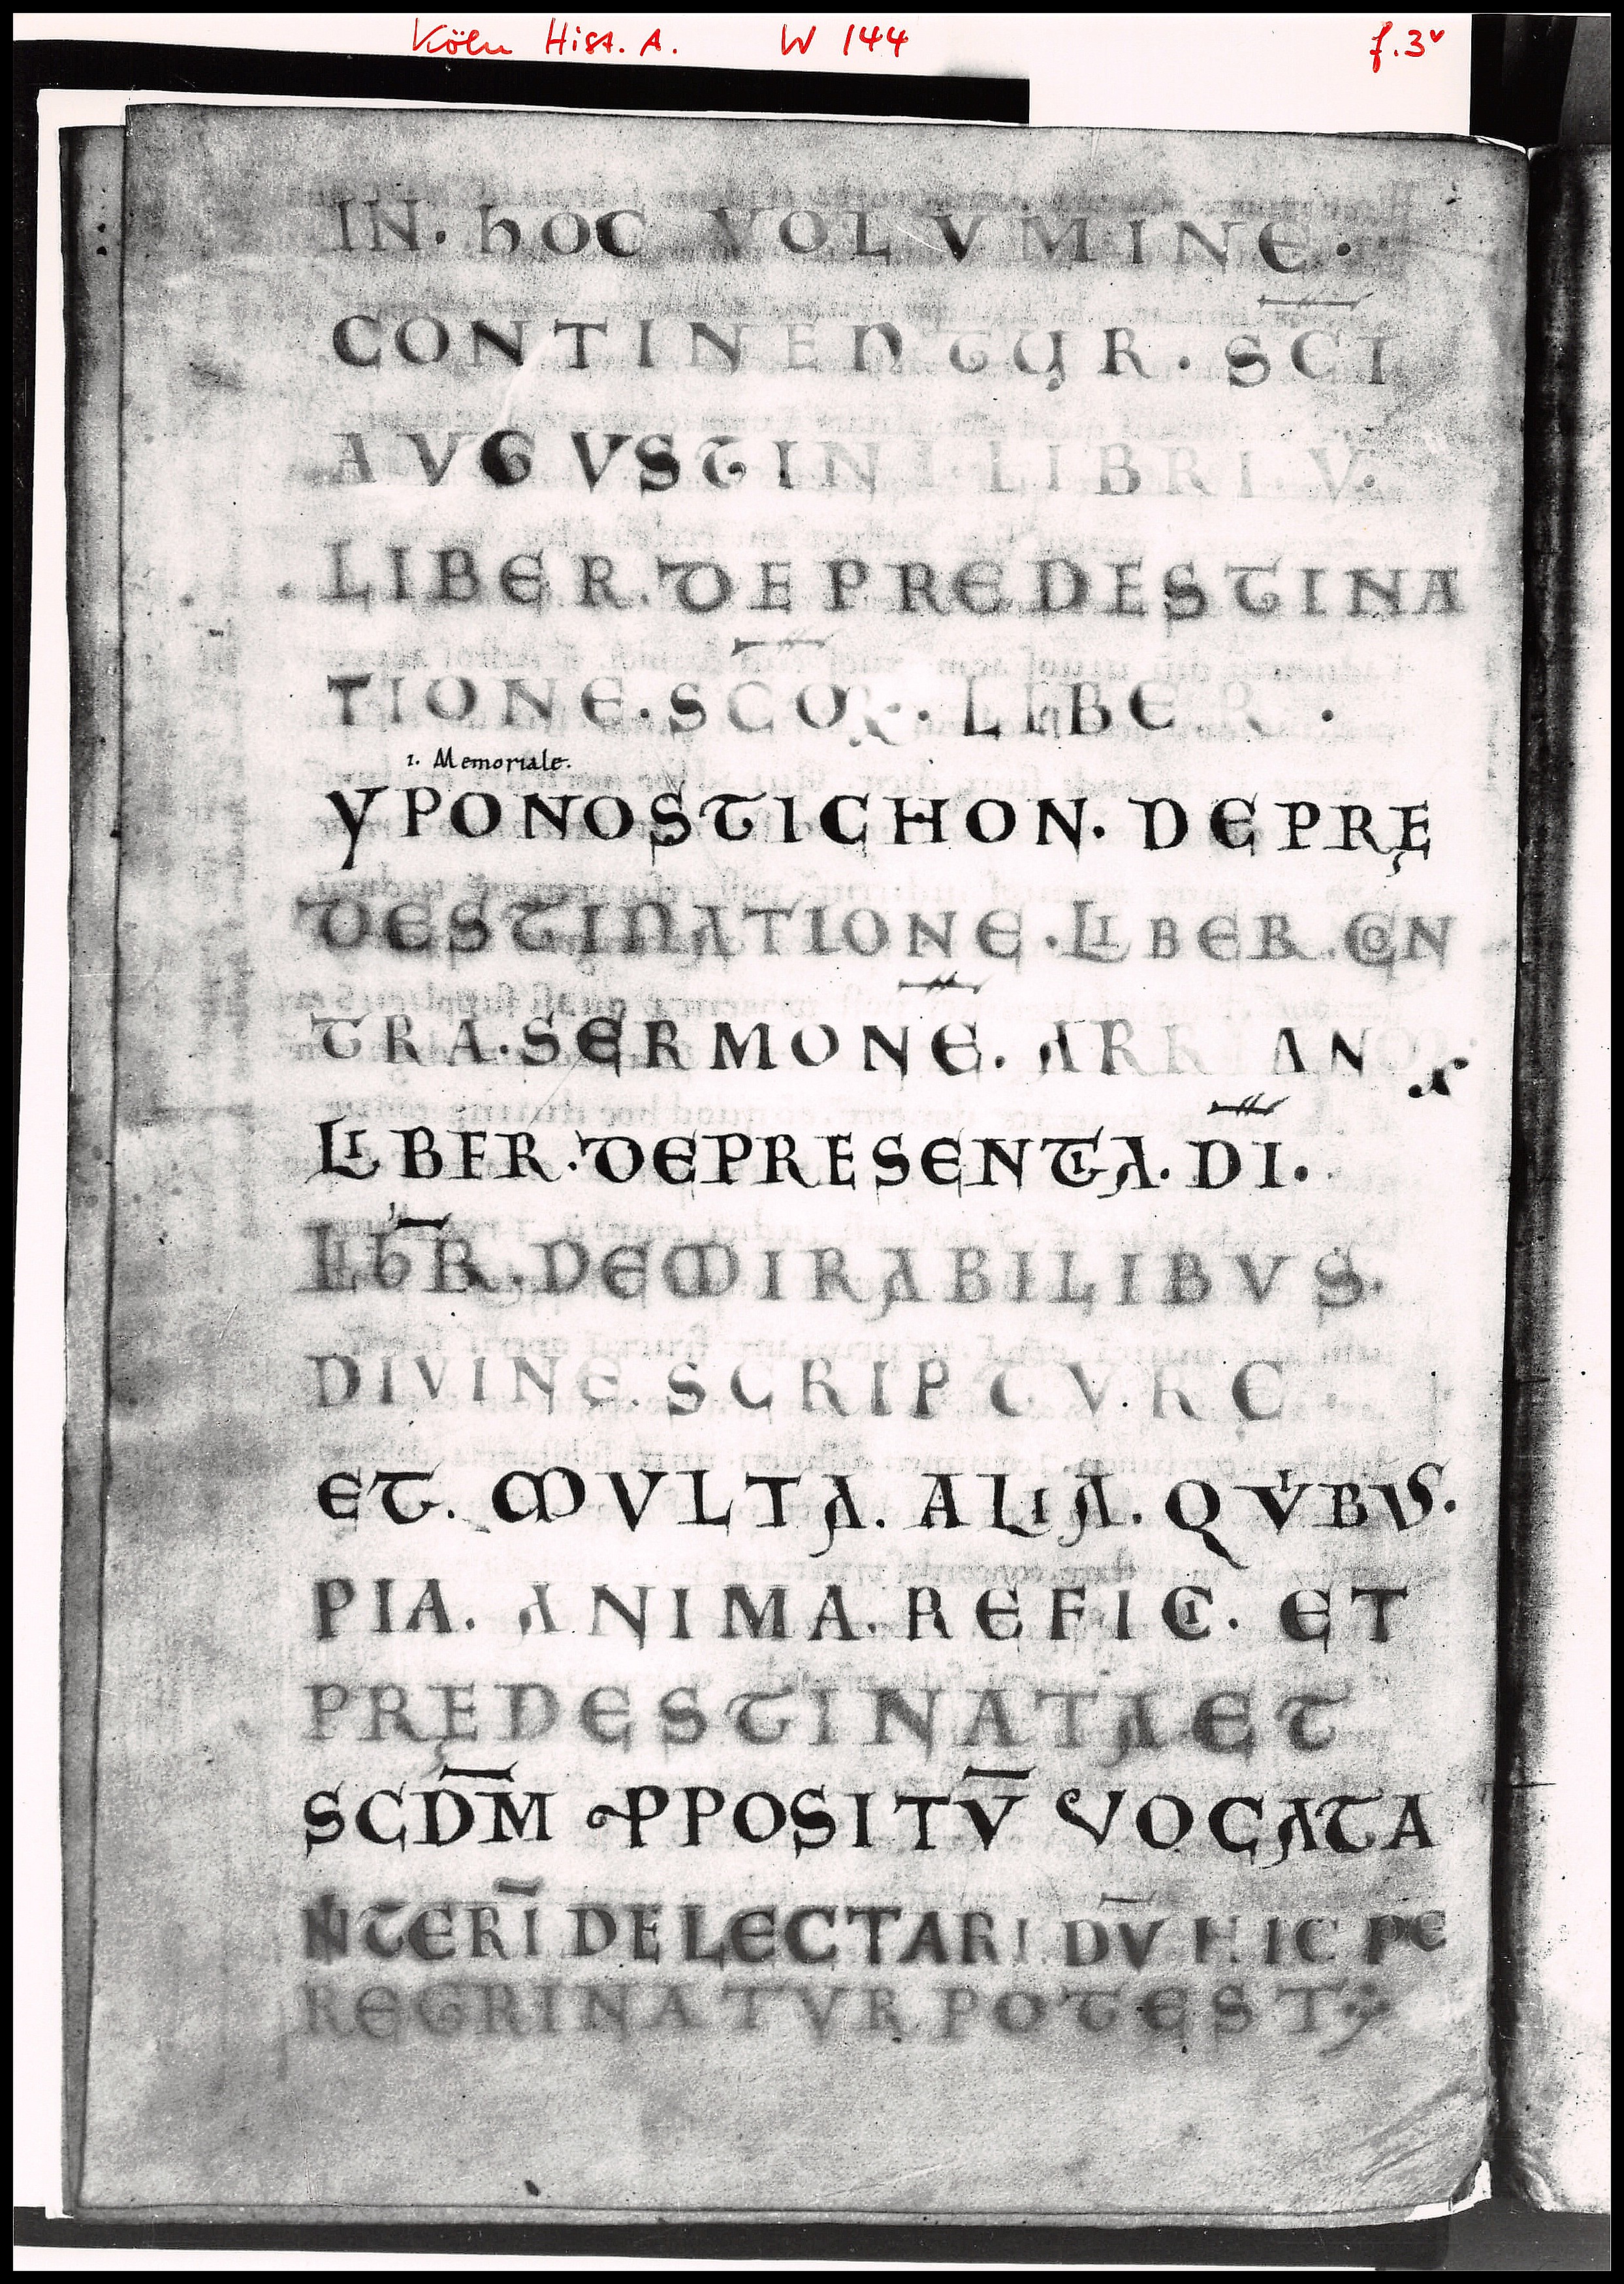 Köln Hist. A. W 144 f.3v
IN. hOC VOLVMINE.
CONTINENTUR. SC̅I
AVGVSTINI. LIBRI. V.
LIBER. DE PREDESTINA
TIONE. SC̅OꝜ. LIBER.
1. Memoriale.
YPONOSTICHON. DE PRĘ
DESTINATIONE. LIBER. CON
TRA. SERMONE̅. ARRIANOꝜ
LIBER. DE PRESENTIA. D̅I.
LIB̅R. DE MIRABILIBVS.
DIVINĘ. SCRIPTV.RĘ.
ET. MVLTA. ALIA. QVIBVS.
PIA. ANIMA. REFICI. ET
PRĘDESTINATA ET
SCD̅M ꝓPOSITV̅ VOCATA
NTERI̅ DELECTARI. DV̅ HIC PE
REGRINATVR POTEST;